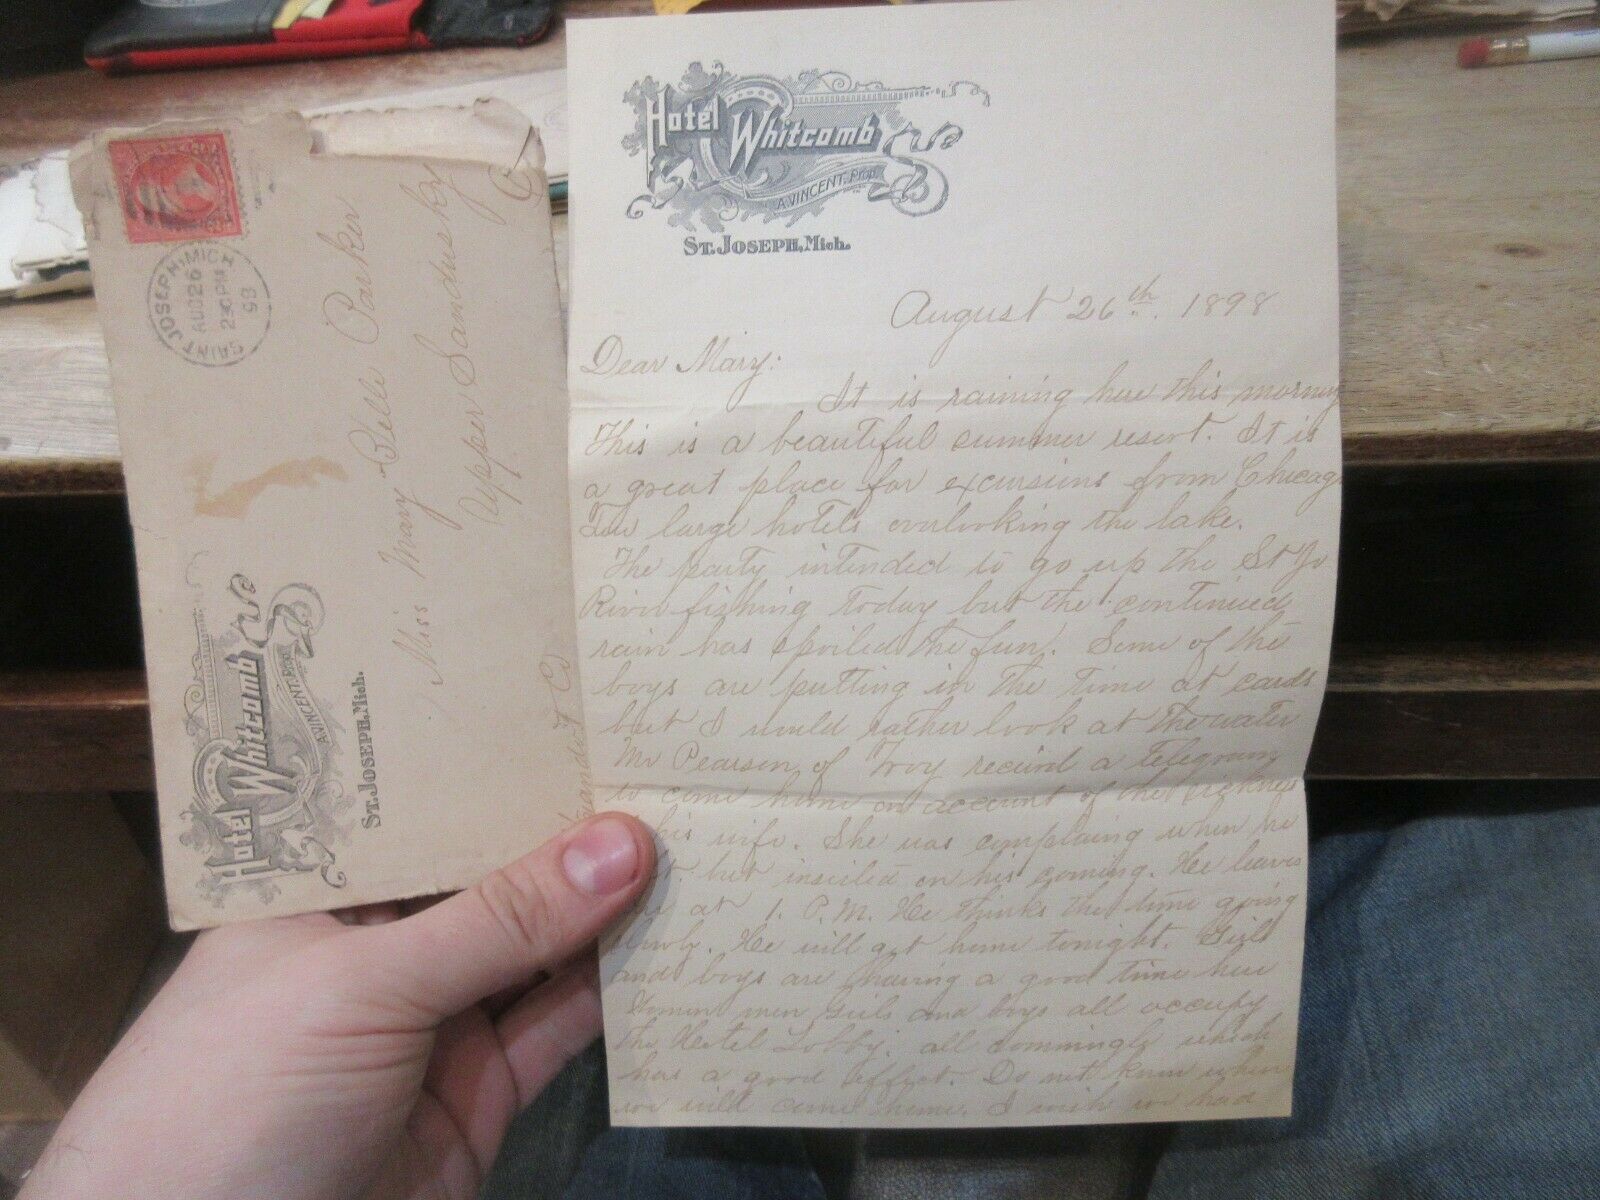 Hotel Whitcomb
A. VINCENT, Prop.
ST. JOSEPH, Mich.
August 26th. 1898
Dear Mary:
It is raining here this morning
This is a beautiful summer resort. It is
a great place for excursions from Chicag
large hotels overlooking the lake.
The party intended to go up the St Jo
River fishing today but the continued
rain has spoiled the fun. Some of the
boys are putting in the time at cards
but I would rather look at the water
Mr Pearson of Troy recievd a telegram
to come home on account of the sickness
his wife. She was complaining when he
but insisted on his coming. He leaves
at 1. P.M. He thinks the time going
slowly. He will get home tonight. Girls
and boys are having a good time here
Women men girls and boys all occupy
the Hotel Lobby. all commingle which
has a good effect. Do not know when
we will come home. I wish we had
SAINT JOSEPH, MICH.
AUG 26
2 30 PM
98
Miss Mary Belle Parker
Upper Sandusky
Wyandot Co
O
Hotel Whitcomb
A. VINCENT, Prop.
ST. JOSEPH, Mich.